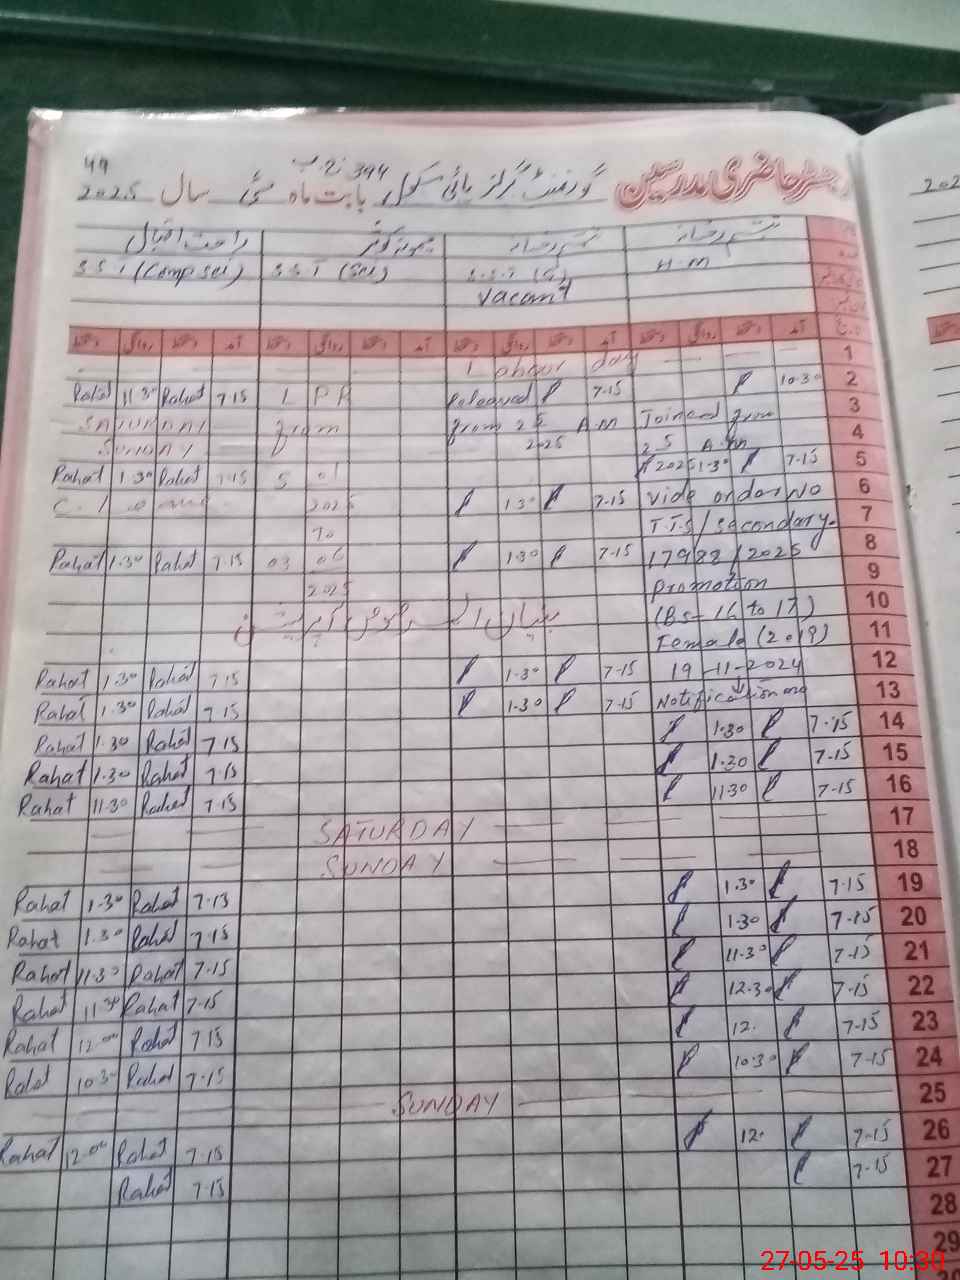 49
394
رجسٹر حاضری مدرسین گورنمنٹ گرلز ہائی سکول بابت ماہ مئی سال 2025
202
راحت اقبال
S.S.T (Comp sci) S.S.T (Sci) S.S.T (G) H.M
Vacant
دستخط روانگی دستخط آمد دستخط روانگی دستخط آمد دستخط روانگی دستخط آمد دستخط روانگی دستخط آمد
Labour day 1
Rahat 11.30 Rahat 7.15 released 7-15 10.30 2
SATURDAY from from 25 A.M Joined from 3
SUNDAY 2025 25 A.M 4
Rahat 1.30 Rahat 7.15 5 01 2025 1.30 7-15 5
2025 1.30 7-15 vide order No 6
To T.T.S/secondary- 7
Rahat 1.30 Rahat 7.15 03 06 1.30 7-15 17988/2025 8
2025 Promotion 9
(BS-16 to 17) 10
Female (2019) 11
Rahat 1.30 Rahat 7.15 1.30 7-15 19-11-2024 12
Rahat 1.30 Rahat 7.15 1.30 7-15 Notification 13
Rahat 1.30 Rahat 7.15 1.30 7-15 14
Rahat 1.30 Rahat 7.15 1.30 7-15 15
Rahat 11.30 Rahat 7.15 11.30 7-15 16
SATURDAY 17
SUNDAY 18
Rahat 1.30 Rahat 7.15 1.30 7-15 19
Rahat 1.30 Rahat 7.15 1.30 7-15 20
Rahat 11.30 Rahat 7.15 11.30 7-15 21
Rahat 11.30 Rahat 7.15 12.30 7-15 22
Rahat 12.00 Rahat 7.15 12. 7-15 23
Rahat 10.30 Rahat 7.15 10.30 7-15 24
SUNDAY 25
Rahat 12.00 Rahat 7.15 12. 7-15 26
Rahat 7.15 7-15 27
28
29
27-05-25 10:30